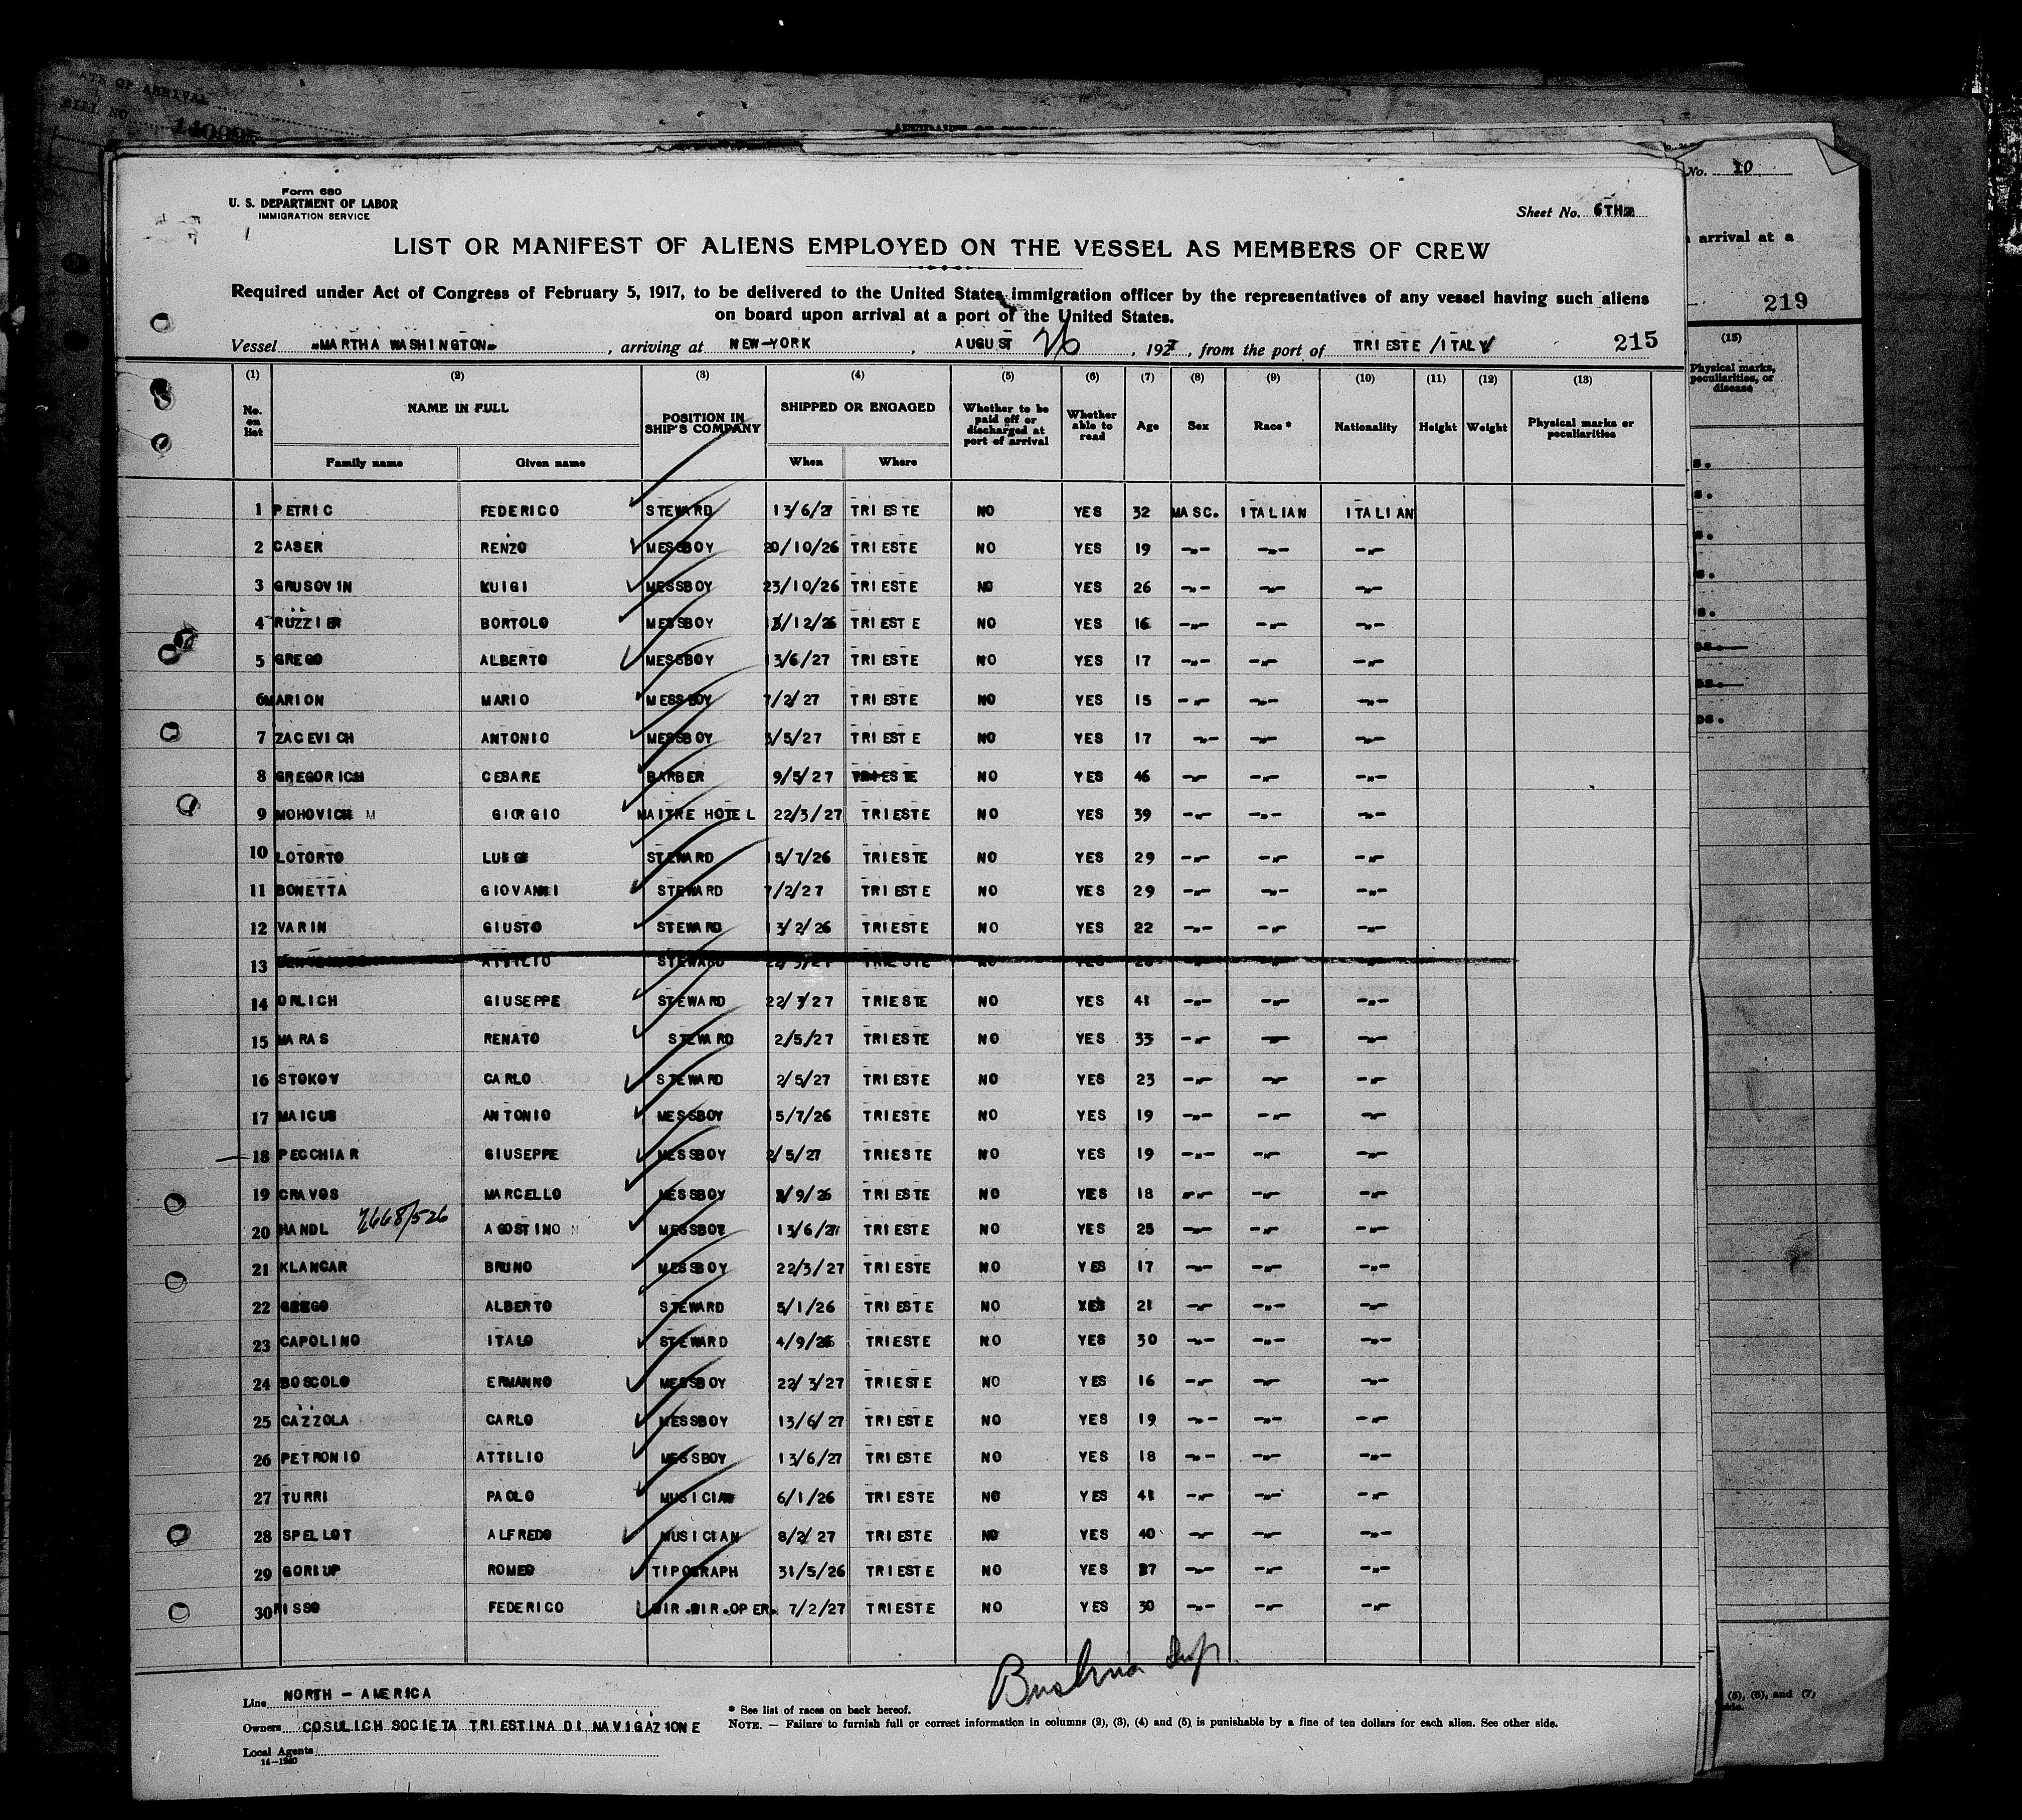 ATE OF ARRIVAL
BILL NO.
No. 10
arrival at a
219
(15)
Physical marks, peculiarities, or disease
Form 680
U. S. DEPARTMENT OF LABOR
IMMIGRATION SERVICE
Sheet No. 6TH
LIST OR MANIFEST OF ALIENS EMPLOYED ON THE VESSEL AS MEMBERS OF CREW
Required under Act of Congress of February 5, 1917, to be delivered to the United States immigration officer by the representatives of any vessel having such aliens
on board upon arrival at a port of the United States.
Vessel "MARTHA WASHINGTON", arriving at NEW-YORK, AUGUST 26, 1927, from the port of TRIESTE /ITALY 215
(1) (2) (3) (4) (5) (6) (7) (8) (9) (10) (11) (12) (13)
No. on list NAME IN FULL POSITION IN SHIP'S COMPANY SHIPPED OR ENGAGED Whether to be paid off or discharged at port of arrival Whether able to read Age Sex Race * Nationality Height Weight Physical marks or peculiarities
Family name Given name When Where
1 PETRIC FEDERICO STEWARD 13/6/27 TRIESTE NO YES 32 MASC. ITALIAN ITALIAN
2 CASER RENZO MESSBOY 20/10/26 TRIESTE NO YES 19 -"- -"- -"-
3 GRUSOVIN KUIGI MESSBOY 23/10/26 TRIESTE NO YES 26 -"- -"- -"-
4 RUZZIER BORTOLO MESSBOY /12/26 TRIESTE NO YES 16 -"- -"- -"-
5 GREGO ALBERTO MESSBOY 13/6/27 TRIESTE NO YES 17 -"- -"- -"-
6 MARION MARIO MESSBOY 7/2/27 TRIESTE NO YES 15 -"- -"- -"-
7 ZACEVICH ANTONIO MESSBOY 3/5/27 TRIESTE NO YES 17 -"- -"- -"-
8 GREGORICH CESARE BARBER 9/5/27 TRIESTE NO YES 46 -"- -"- -"-
9 MOHOVICH M GIORGIO MAITRE HOTEL 22/3/27 TRIESTE NO YES 39 -"- -"- -"-
10 LOTORTO LUIGI STEWARD 15/7/26 TRIESTE NO YES 29 -"- -"- -"-
11 BONETTA GIOVANNI STEWARD 7/2/27 TRIESTE NO YES 29 -"- -"- -"-
12 VARIN GIUSTO STEWARD 13/2/26 TRIESTE NO YES 22 -"- -"- -"-
13 ATTILIO STEWARD TRIESTE NO YES
14 ORLICH GIUSEPPE STEWARD 22/3/27 TRIESTE NO YES 41 -"- -"- -"-
15 MARAS RENATO STEWARD 2/5/27 TRIESTE NO YES 33 -"- -"- -"-
16 STOKOV CARLO STEWARD 2/5/27 TRIESTE NO YES 23 -"- -"- -"-
17 MAICUS ANTONIO MESSBOY 15/7/26 TRIESTE NO YES 19 -"- -"- -"-
18 PECCHIAR GIUSEPPE MESSBOY 2/5/27 TRIESTE NO YES 19 -"- -"- -"-
19 CRAVOS MARCELLO MESSBOY /9/26 TRIESTE NO YES 18 -"- -"- -"-
20 HANDL 7668/526 AGOSTINO M MESSBOY 13/6/27 TRIESTE NO YES 25 -"- -"- -"-
21 KLANCAR BRUNO MESSBOY 22/3/27 TRIESTE NO YES 17 -"- -"- -"-
22 GREGO ALBERTO STEWARD 5/1/26 TRIESTE NO YES 21 -"- -"- -"-
23 CAPOLINO ITALO STEWARD 4/9/26 TRIESTE NO YES 30 -"- -"- -"-
24 BOSCOLO ERMANNO MESSBOY 22/3/27 TRIESTE NO YES 16 -"- -"- -"-
25 CAZZOLA CARLO MESSBOY 13/6/27 TRIESTE NO YES 19 -"- -"- -"-
26 PETRONIO ATTILIO MESSBOY 13/6/27 TRIESTE NO YES 18 -"- -"- -"-
27 TURRI PAOLO MUSICIAN 6/1/26 TRIESTE NO YES 41 -"- -"- -"-
28 SPELLOT ALFREDO MUSICIAN 8/2/27 TRIESTE NO YES 40 -"- -"- -"-
29 GORIUP ROMEO TIPOGRAPH 31/5/26 TRIESTE NO YES 27 -"- -"- -"-
30 RISSO FEDERICO WIR.OPER. 7/2/27 TRIESTE NO YES 30 -"- -"- -"-
Line NORTH - AMERICA
Owners COSULICH SOCIETA TRIESTINA DI NAVIGAZIONE
Local Agents
14-1240
* See list of races on back hereof.
NOTE. — Failure to furnish full or correct information in columns (2), (3), (4) and (5) is punishable by a fine of ten dollars for each alien. See other side.
(5), (6), and (7)